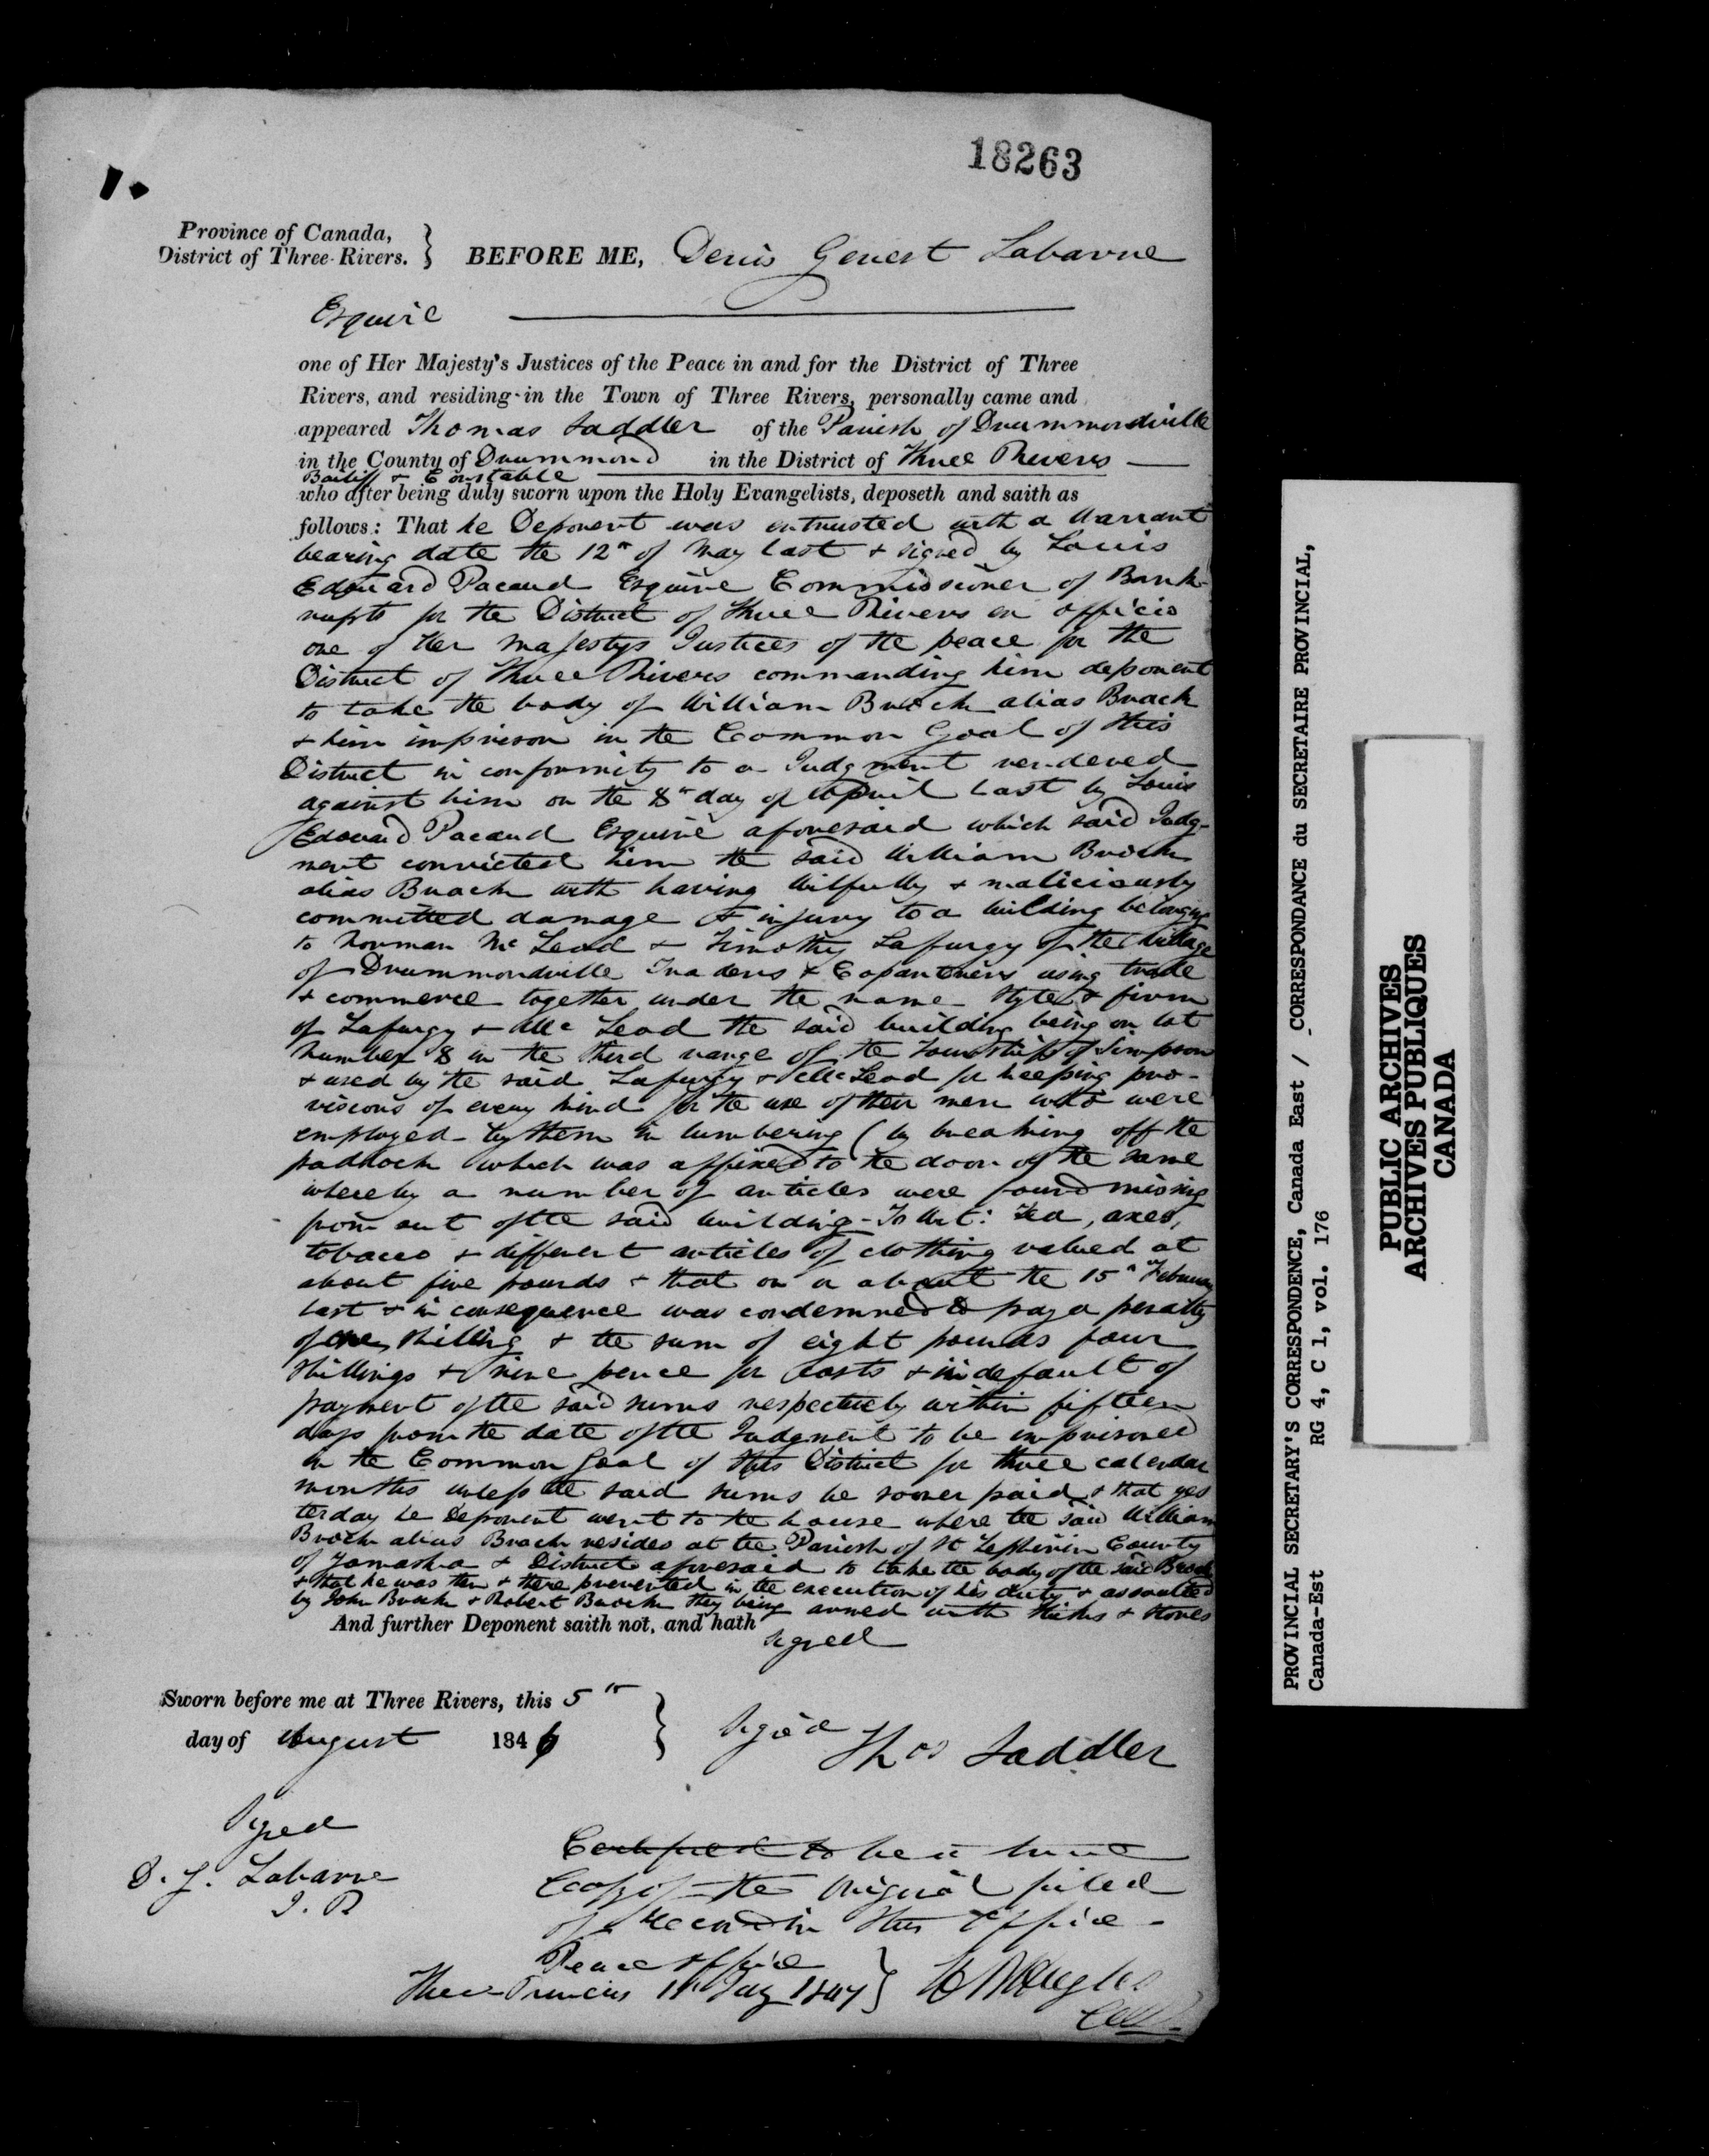 18263
1.
Province of Canada,
District of Three-Rivers. } BEFORE ME, Denis Genest Labarre
Esquire
one of Her Majesty's Justices of the Peace in and for the District of Three
Rivers, and residing in the Town of Three Rivers, personally came and
appeared Thomas Saddler of the Parish of Drummondville
in the County of Drummond in the District of Three Rivers —
Bailiff & Constable
who after being duly sworn upon the Holy Evangelists, deposeth and saith as
follows: That he Deponent was entrusted with a Warrant
bearing date the 12th of May last & signed by Louis
Edouard Pacaud Esquire Commissioner of Bank-
rupts for the District of Three Rivers ex officio
one of Her Majestys Justices of the peace for the
District of Three Rivers commanding him deponent
to take the body of William Brock alias Brack
& him imprison in the Common Goal of this
District in conformity to a Judgment rendered
against him on the 8th day of April last by Louis
Edouard Pacaud Esquire aforesaid which said Judg-
ment convicted him the said William Brock
alias Brack with having Wilfully & maliciously
committed damage & injury to a building belonging
to Norman McLeod & Timothy Lafurgy of the Village
of Drummondville Traders & Copartners using trade
& commerce together under the name Style & firm
of Lafurgy & McLeod the said building being on lot
Number 8 in the third range of the Township of Simpson
& used by the said Lafurgy & McLeod for keeping pro-
visions of every kind for the use of their men who were
employed by them in lumbering (by breaking off the
paddlock which was affixed to the door of the same
whereby a number of articles were found missing
from out of the said building - To Wit: Tea, axes,
tobacco & different articles of clothing valued at
about five pounds & that on or about the 15th February
last & in consequence was condemned to pay a penalty
of one Shilling & the sum of eight pounds four
Shillings & nine pence for costs & in default of
payment of the said sums respectively within fifteen
days from the date of the Judgment to be imprisoned
in the Common Goal of this District for three calendar
months unless the said sums be sooner paid & that yes
terday he Deponent went to the house where the said William
Brock alias Brack resides at the Parish of St Zephirin County
of Yamaska & District aforesaid to take the body of the said Brock
& that he was then & there prevented in the execution of his duty & assaulted
by John Brock & Robert Brock they being armed with Sticks & Stones
And further Deponent saith not, and hath
signed
Sworn before me at Three Rivers, this 5th
day of August 1846 }
Signed Thos Saddler
Signed
D. G. Labarre
J. P.
Certified to be a true
Copy of the Original filed
of Record in this Office -
Peace Office
Three Rivers 11 1847 }
PROVINCIAL SECRETARY'S CORRESPONDENCE, Canada East / CORRESPONDANCE du SECRETAIRE PROVINCIAL,
Canada-Est RG 4, C 1, vol. 176
PUBLIC ARCHIVES
ARCHIVES PUBLIQUES
CANADA